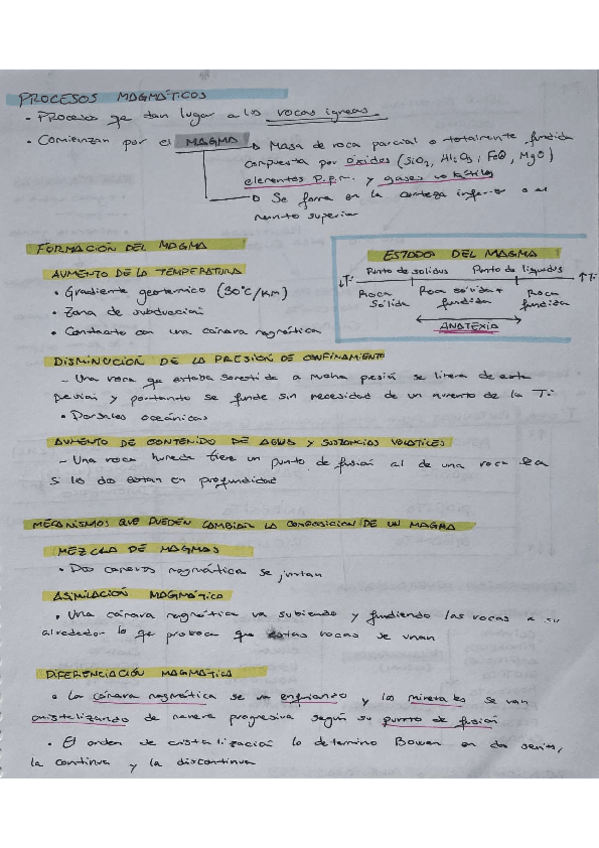 PROCESOS MAGMÁTICOS
- Procesos que dan lugar a las rocas ígneas.
- Comienzan por el MAGMA
Masa de roca parcial o totalmente fundida
compuesta por óxidos (SiO2, Al2O3, FeO, MgO)
elementos p.p.m. y gases volátiles
Se forma en la corteza inferior o el
manto superior
FORMACIÓN DEL MAGMA
AUMENTO DE LA TEMPERATURA
• Gradiente geotérmico (30°C/Km)
• Zona de subducción
• Contacto con una cámara magmática
ESTADOS DEL MAGMA
Punto de solidus Punto de liquidus
↓Tª ↑Tª
Roca Sólida
Roca sólida + fundida
Roca fundida
ANATEXIA
DISMINUCIÓN DE LA PRESIÓN DE CONFINAMIENTO
- Una roca que estaba sometida a mucha presión se libera de esta
presión y por tanto se funde sin necesidad de un aumento de la Tª
• Dorsales oceánicas
AUMENTO DE CONTENIDO DE AGUA Y SUSTANCIAS VOLÁTILES
- Una roca húmeda tiene un punto de fusión al de una roca seca
si las dos están en profundidad
MECANISMOS QUE PUEDEN CAMBIAR LA COMPOSICIÓN DE UN MAGMA
MEZCLA DE MAGMAS
• Dos cámaras magmática se juntan
ASIMILACIÓN MAGMÁTICA
• Una cámara magmática va subiendo y fundiendo las rocas a su
alrededor lo que provoca que estas rocas se unan
DIFERENCIACIÓN MAGMÁTICA
• La cámara magmática se va enfriando y los minerales se van
cristalizando de manera progresiva según su punto de fusión
• El orden de cristalización lo determino Bowen en dos series,
la continua y la discontinua